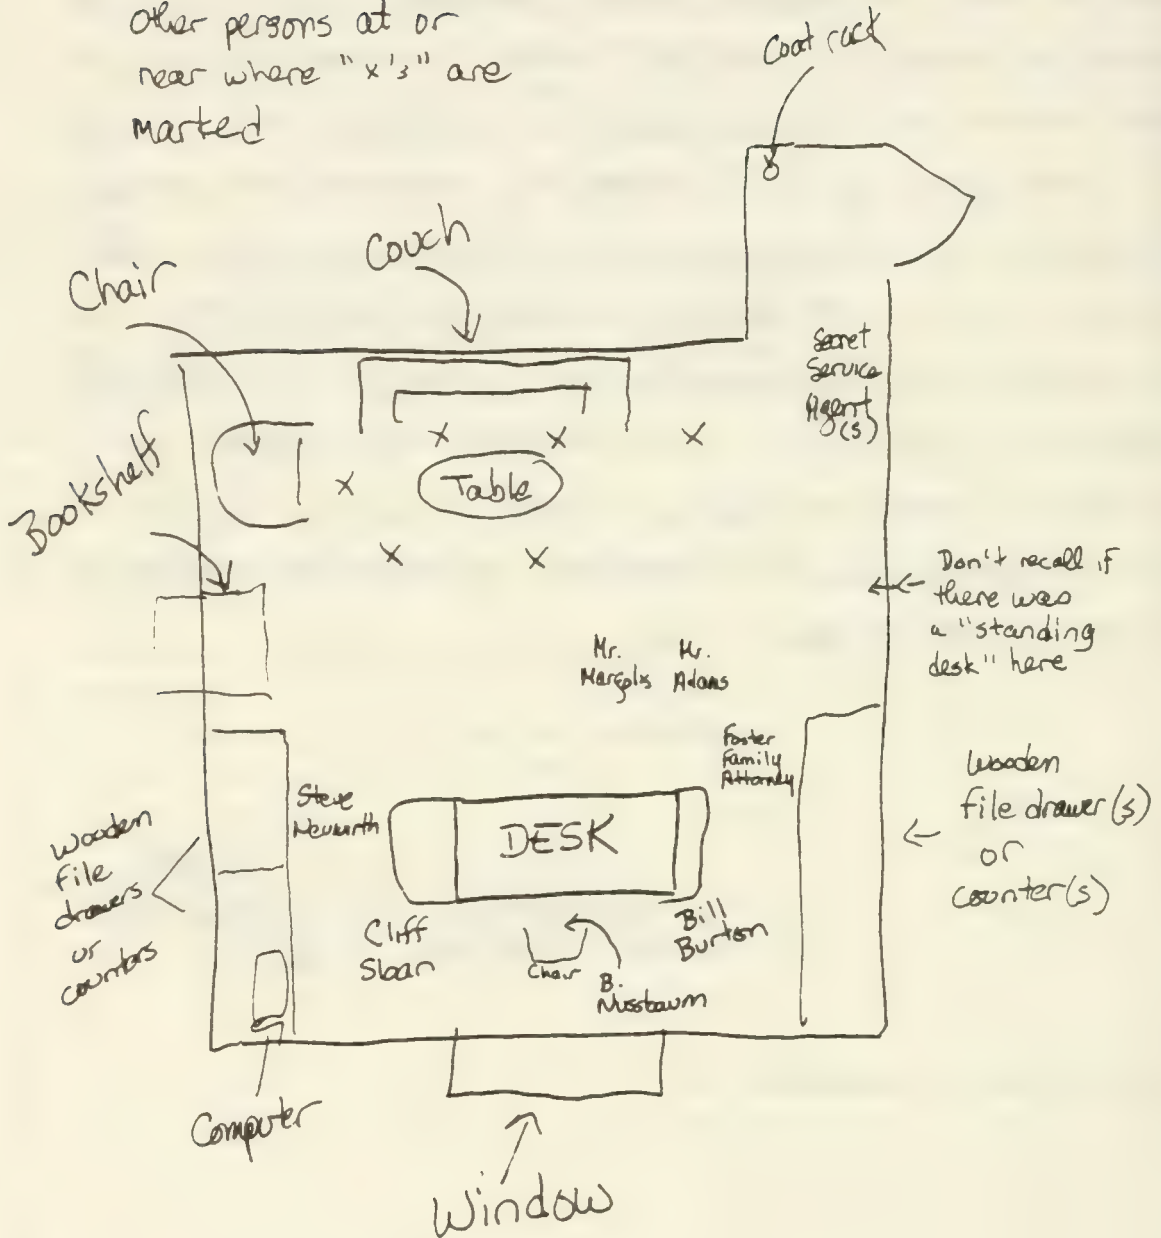 Other persons at or
near where "x's" are
marked
Coat rack
Couch
Chair
Secret
Service
Agent
(s)
Bookshelf
x x x
x
Table
x x
Don't recall if
there was
a "standing
desk" here
Mr.
Margolis
Mr.
Adams
Foster
Family
Attorney
wooden
file drawer(s)
or
counter(s)
Steve
Neuwirth
DESK
wooden
file
drawers
or
counters
Cliff
Sloan
Chair
B.
Nussbaum
Bill
Burton
Computer
Window